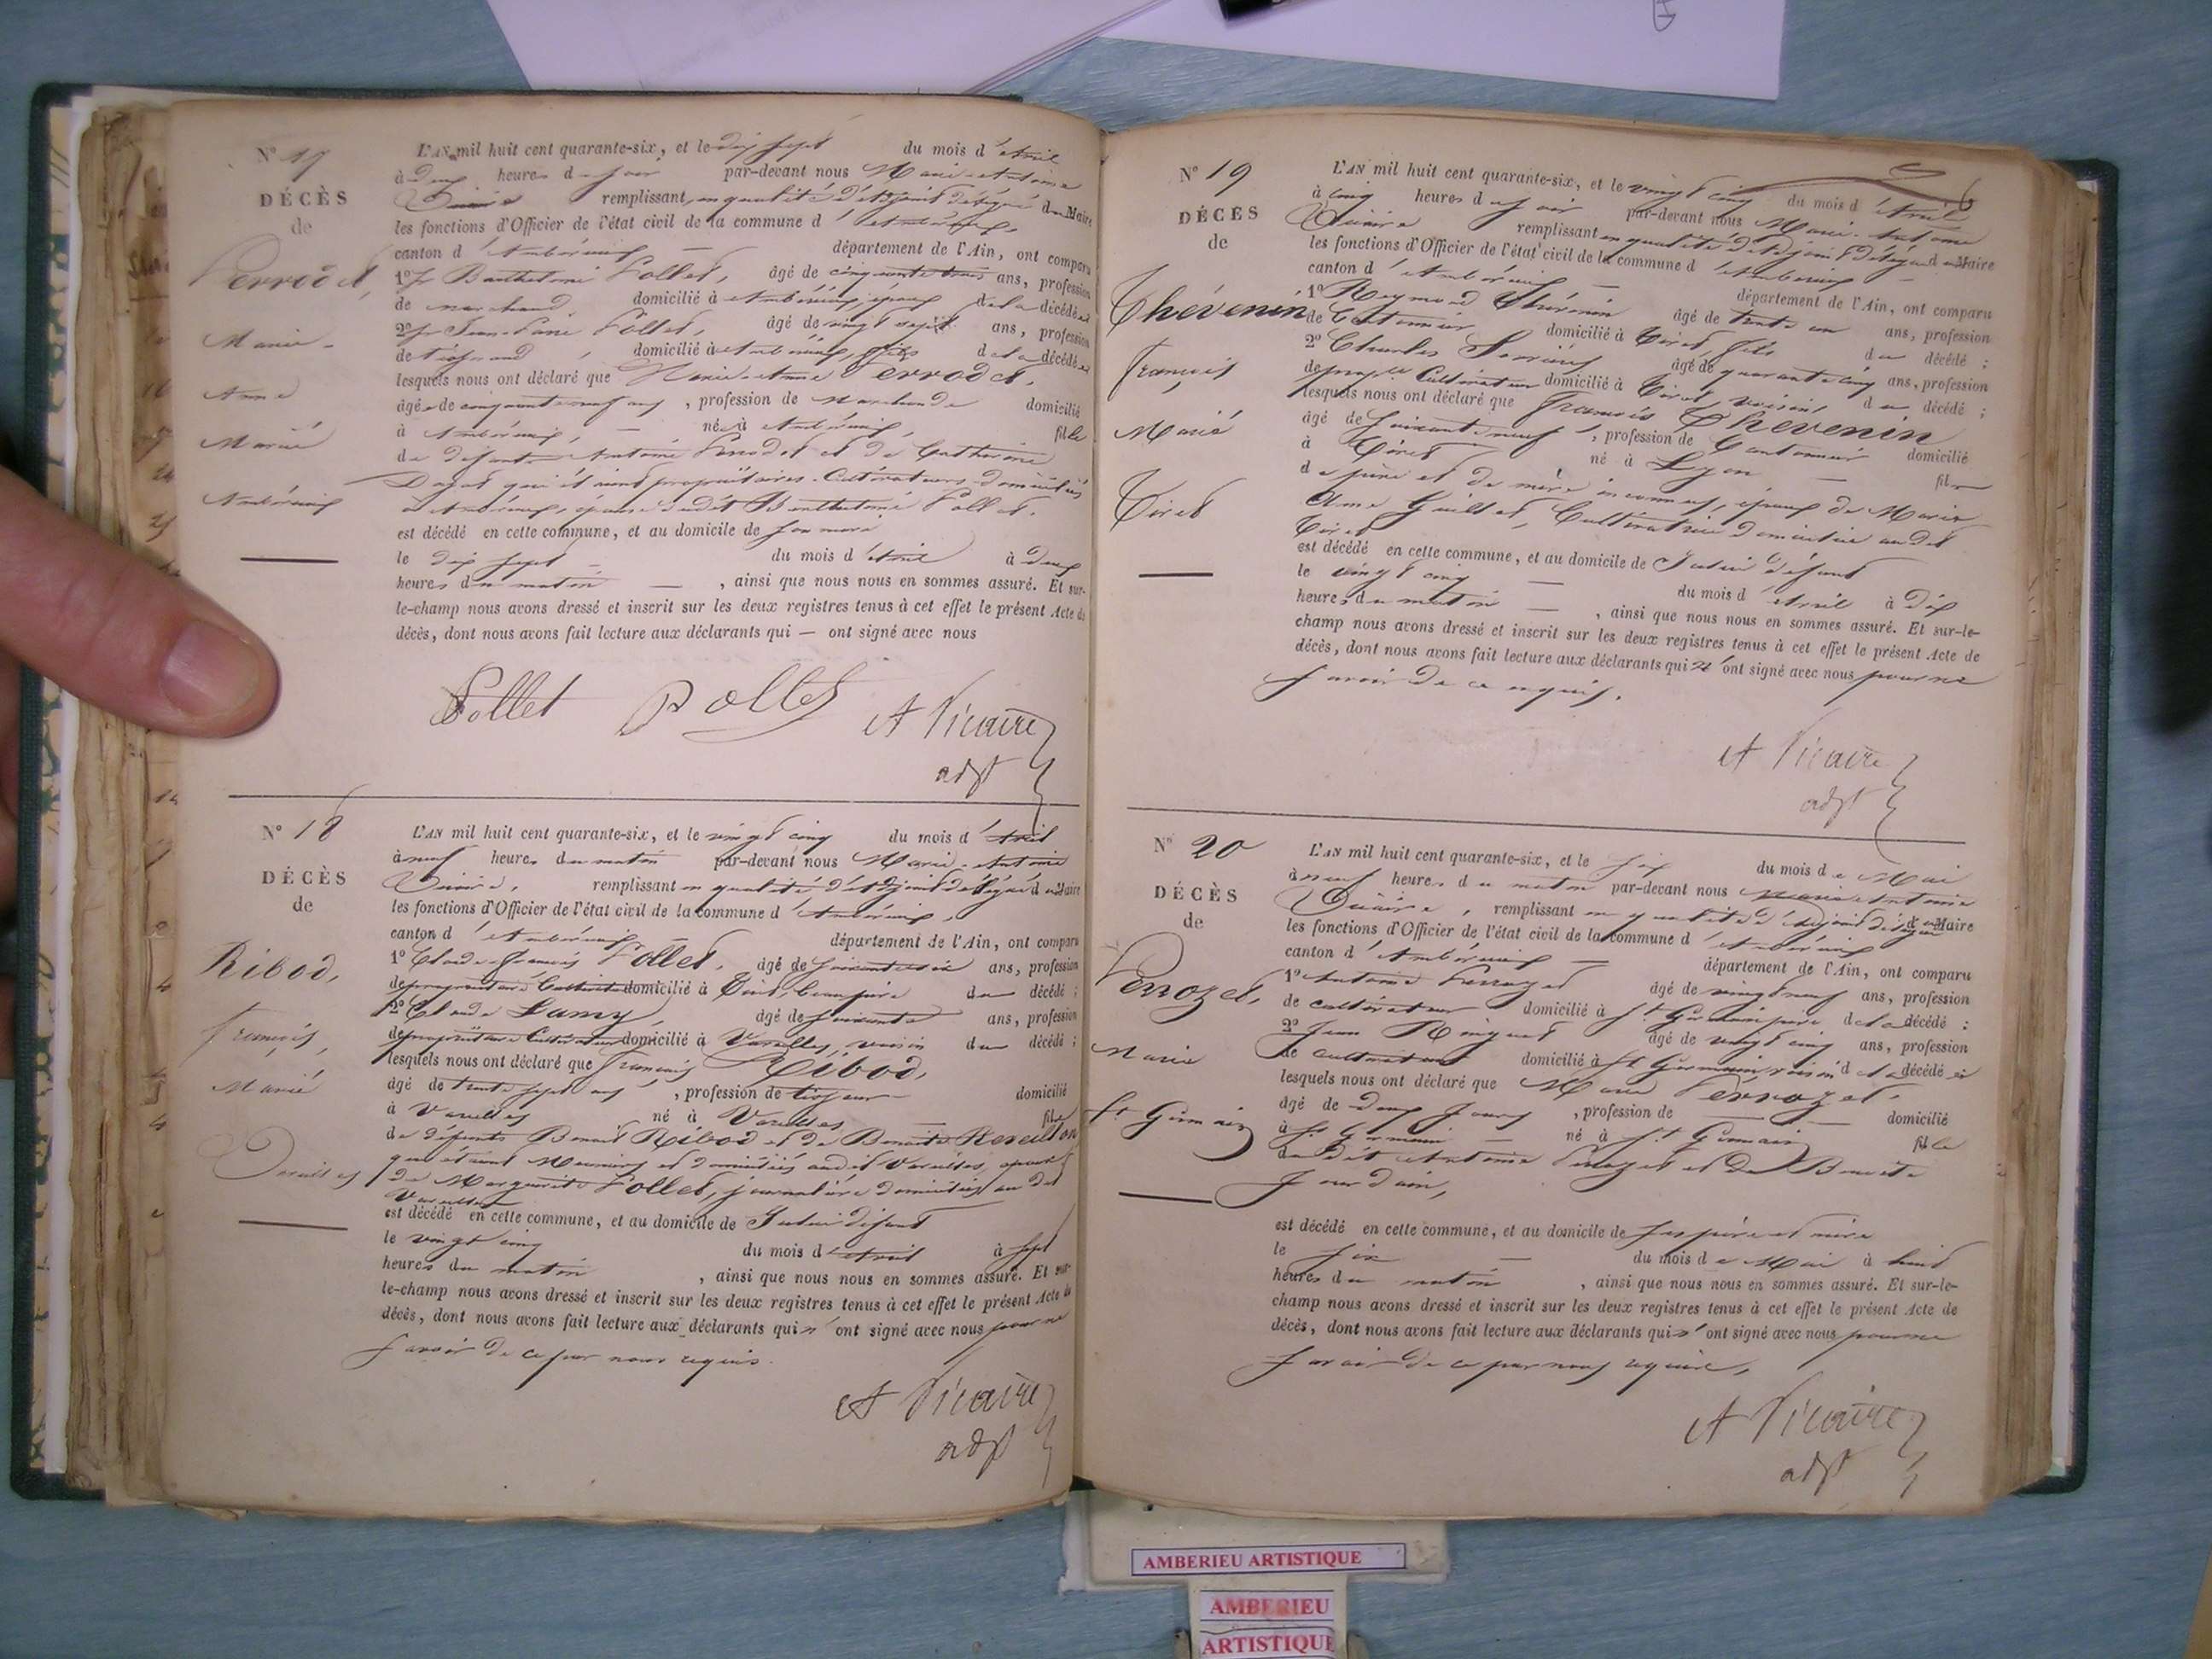 N° 17
DÉCÈS
de
Perrodet,
Marie-
Anne
Mariée
Ambérieux
L'AN mil huit cent quarante-six, et le dix sept du mois d'Avril
à deux heures du soir par-devant nous Marie-Antoine
Vicaire remplissant, en qualité d'Adjoint délégué du Maire
les fonctions d'Officier de l'état civil de la commune d'Ambérieux,
canton d'Ambérieux — département de l'Ain, ont comparu
1° Barthelemi Pollet, âgé de cinquante trois ans, profession
de marchand domicilié à Ambérieux, époux de la décédée
2° Jean-Marie Pollet, âgé de vingt sept ans, profession
de domicilié à Ambérieux, fils de la décédée
lesquels nous ont déclaré que Marie-Anne Perrodet,
âgée de cinquante neuf ans, profession de Marchande domicilié
à Ambérieux, — née à Ambérieux, fille
de défunts Antoine Perrodet et de Catherine
qui étaient propriétaires-Cultivateurs domiciliés
à Ambérieux, épouse dudit Barthelemi Pollet.
est décédé en cette commune, et au domicile de son mari
le dix sept — du mois d'Avril à deux
heures du matin — , ainsi que nous nous en sommes assuré. Et sur-
le-champ nous avons dressé et inscrit sur les deux registres tenus à cet effet le présent Acte de
décès, dont nous avons fait lecture aux déclarants qui — ont signé avec nous
Pollet Pollet A Vicaire
adjt
N° 18
DÉCÈS
de
Ribod,
François,
Marié
Vareilles
L'AN mil huit cent quarante-six, et le vingt cinq du mois d'Avril
à neuf heures du matin par-devant nous Marie-Antoine
Vicaire, remplissant en qualité d'Adjoint délégué du Maire
les fonctions d'Officier de l'état civil de la commune d'Ambérieux,
canton d'Ambérieux — département de l'Ain, ont comparu
1° Claude-François Pollet, âgé de ans, profession
de propriétaire Cultivateur domicilié à Tiret, beau père du décédé ;
2° Claude Lamy, âgé de soixante ans, profession
de propriétaire Cultivateur domicilié à Vareilles, voisin du décédé ;
lesquels nous ont déclaré que François Ribod,
âgé de trente sept ans, profession de domicilié
à Vareilles né à Vareilles — fils
de défunts Benoit Ribod et de Benoite
qui étaient Meuniers et domiciliés audit Vareilles, époux
de Marguerite Pollet, journalière domiciliée au dit
Vareilles
est décédé en cette commune, et au domicile de Lui défunt
le vingt cinq du mois d'Avril à sept
heures du matin , ainsi que nous nous en sommes assuré. Et sur-
le-champ nous avons dressé et inscrit sur les deux registres tenus à cet effet le présent Acte de
décès, dont nous avons fait lecture aux déclarants qui n'ont signé avec nous pour ne
savoir de ce par nous requis.
A Vicaire
adjt
N° 19
DÉCÈS
de
Thévenin
François,
Marié
Tiret
L'AN mil huit cent quarante-six, et le vingt cinq du mois d'Avril
à cinq heures du soir par-devant nous Marie-Antoine
Vicaire remplissant en qualité d'Adjoint délégué du Maire
les fonctions d'Officier de l'état civil de la commune d'Ambérieux
canton d'Ambérieux — département de l'Ain, ont comparu
1° Reymond Thévenin âgé de trente un ans, profession
de Cantonnier domicilié à Tiret, fils du décédé ;
2° Charles âgé de quarante cinq ans, profession
de Cultivateur domicilié à Tiret, voisin, du décédé ;
lesquels nous ont déclaré que François Thevenin
âgé de soixante neuf, profession de Cantonnier domicilié
à Tiret né à Lyon — fils
de père et de mère inconnus, époux de Marie
Anne Guillet, Cultivatrice domiciliée au dit
Tiret
est décédé en cette commune, et au domicile de Lui défunt
le vingt cinq — du mois d'Avril à dix
heures du matin — , ainsi que nous nous en sommes assuré. Et sur-le-
champ nous avons dressé et inscrit sur les deux registres tenus à cet effet le présent Acte de
décès, dont nous avons fait lecture aux déclarants qui n'ont signé avec nous pour ne
savoir de ce requis.
A Vicaire
adjt
N° 20
DÉCÈS
de
Perrozet,
Marie
St Germain
L'AN mil huit cent quarante-six, et le six du mois de Mai
à neuf heures du matin par-devant nous Marie Antoine
Vicaire, remplissant en qualité d'Adjoint délégué du Maire
les fonctions d'Officier de l'état civil de la commune d'Ambérieux
canton d'Ambérieux — département de l'Ain, ont comparu
1° Antoine Perrozet âgé de vingt neuf ans, profession
de cultivateur domicilié à St Germain, père de la décédé ;
2° Jean âgé de vingt cinq ans, profession
de cultivateur domicilié à St Germain, voisin de la décédé
lesquels nous ont déclaré que Marie Perrozet.
âgé de deux jours, profession de — domicilié
à St Germain — né à St Germain fille
dudit Antoine Perrozet et de Benoite
Jourdain,
est décédé en cette commune, et au domicile de ses père et mère
le six — du mois de Mai à huit
heures du matin , ainsi que nous nous en sommes assuré. Et sur-le-
champ nous avons dressé et inscrit sur les deux registres tenus à cet effet le présent Acte de
décès, dont nous avons fait lecture aux déclarants qui n'ont signé avec nous pour ne
savoir de ce par nous requis,
A Vicaire
adjt
AMBERIEU ARTISTIQUE
AMBERIEU
ARTISTIQUE